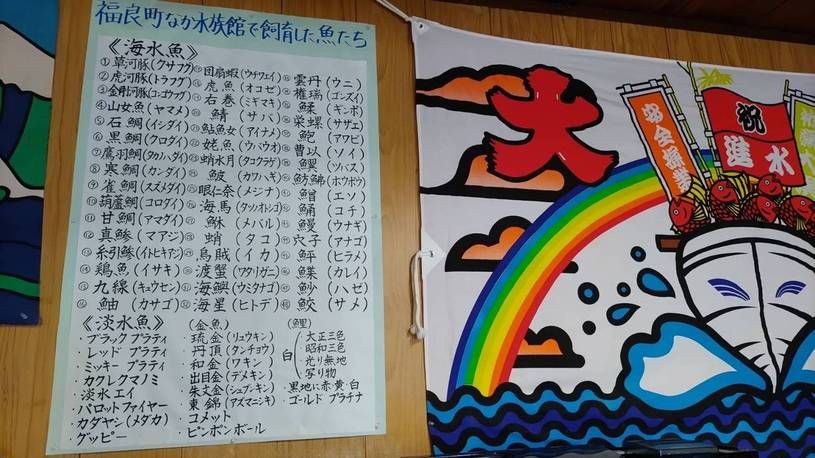 福良町なか水族館で飼育した魚たち
《海水魚》
① 草河豚(クサフグ)
② 虎河豚(トラフグ)
③ 金剛河豚(コンゴウフグ)
④ 山女魚(ヤマメ)
⑤ 石鯛(イシダイ)
⑥ 黒鯛(クロダイ)
⑦ 鷹羽鯛(タカノハダイ)
⑧ 寒鯛(カンダイ)
⑨ 雀鯛(スズメダイ)
⑩ 葫蘆鯛(コロダイ)
⑪ 甘鯛(アマダイ)
⑫ 真鯵(マアジ)
⑬ 糸引鯵(イトヒキアジ)
⑭ 鶏魚(イサキ)
⑮ 九線(キュウセン)
⑯ 鮋(カサゴ)
団扇蝦(ウチワエビ)
虎魚(オコゼ)
右巻(ミギマキ)
鯖(サバ)
鮎魚女(アイナメ)
姥魚(ウバウオ)
蛸水月(タコクラゲ)
鮍(カワハギ)
眼仁奈(メジナ)
海馬(タツノオトシゴ)
鮴(メバル)
蛸(タコ)
烏賊(イカ)
渡蟹(ワタリガニ)
海鱮(ウミタナゴ)
海星(ヒトデ)
雲丹(ウニ)
権瑞(ゴンズイ)
鰇(ギンポ)
栄螺(サザエ)
鮑(アワビ)
曹以(ソイ)
(ツバス)
魴鮄(ホウボウ)
(エソ)
鯒(コチ)
鰻(ウナギ)
穴子(アナゴ)
鮃(ヒラメ)
鰈(カレイ)
(ハゼ)
鮫(サメ)
《淡水魚》
・ブラックプラティ
・レッドプラティ
・ミッキープラティ
・カクレクマノミ
・淡水エイ
・パロットファイヤー
・カダヤシ(メダカ)
・グッピー
(金魚)
・琉金(リュウキン)
・丹頂(タンチョウ)
・和金(ワキン)
・出目金(デメキン)
・朱文金(シュブンキン)
・東錦(アズマニシキ)
・コメット
・ピンポンボール
(鯉)
白
大正三色
昭和三色
光り無地
写り物
・黒地に赤・黄・白
・ゴールド プラチナ
大
安全操業
祝
進水